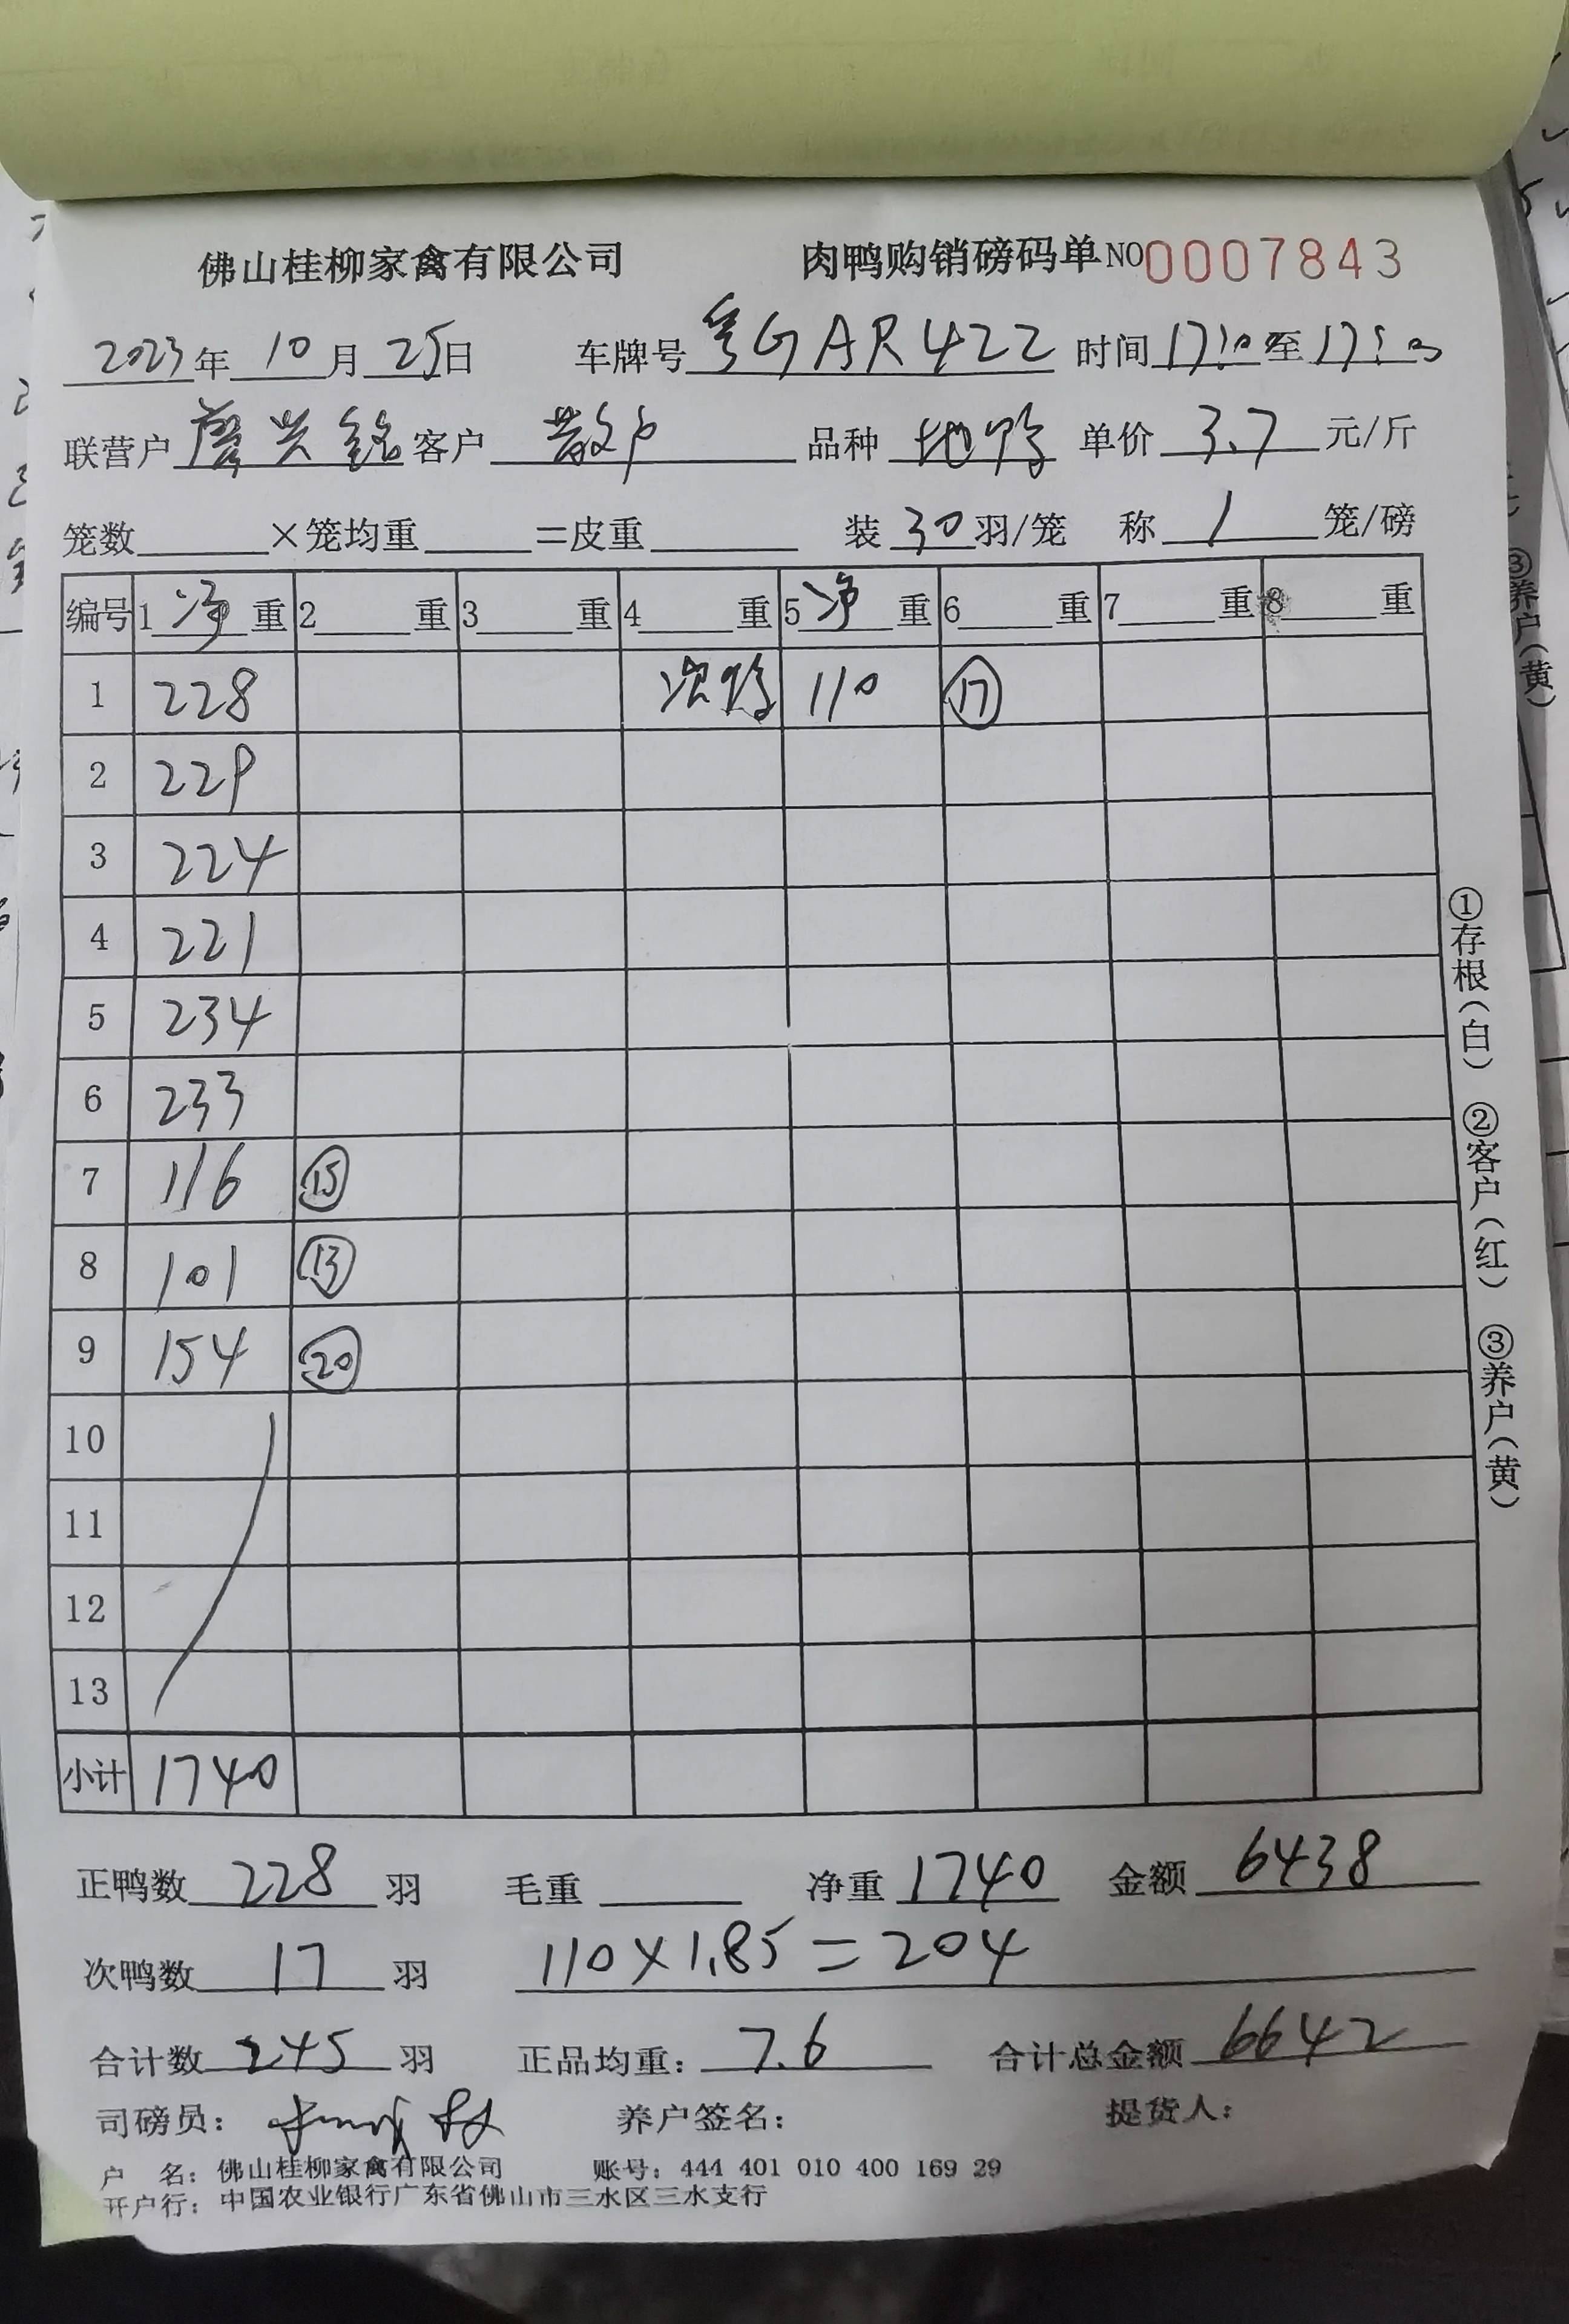 佛山桂柳家禽有限公司 肉鸭购销磅码单 NO 0007843
2023年 10月 25日 车牌号 粤GAR422 时间 17:10 至 17:
联营户 兴铭 客户 散户 品种 地鸭 单价 3.7 元/斤
笼数 ×笼均重 =皮重 装 30 羽/笼 称 1 笼/磅
编号 1 净 重 2 重 3 重 4 重 5 净 重 6 重 7 重 8 重
1 228 次鸭 110 ⑰
2 229
3 224
4 221
5 234
6 233
7 116 ⑮
8 101 ⑬
9 154 ⑳
10
11
12
13
小计 1740
正鸭数 228 羽 毛重 净重 1740 金额 6438
次鸭数 17 羽 110×1.85=204
合计数 245 羽 正品均重: 7.6 合计总金额 6642
司磅员: 养户签名: 提货人:
户 名: 佛山桂柳家禽有限公司 账号: 444 401 010 400 169 29
开户行: 中国农业银行广东省佛山市三水区三水支行
①存根(白) ②客户(红) ③养户(黄)
③养户(黄)